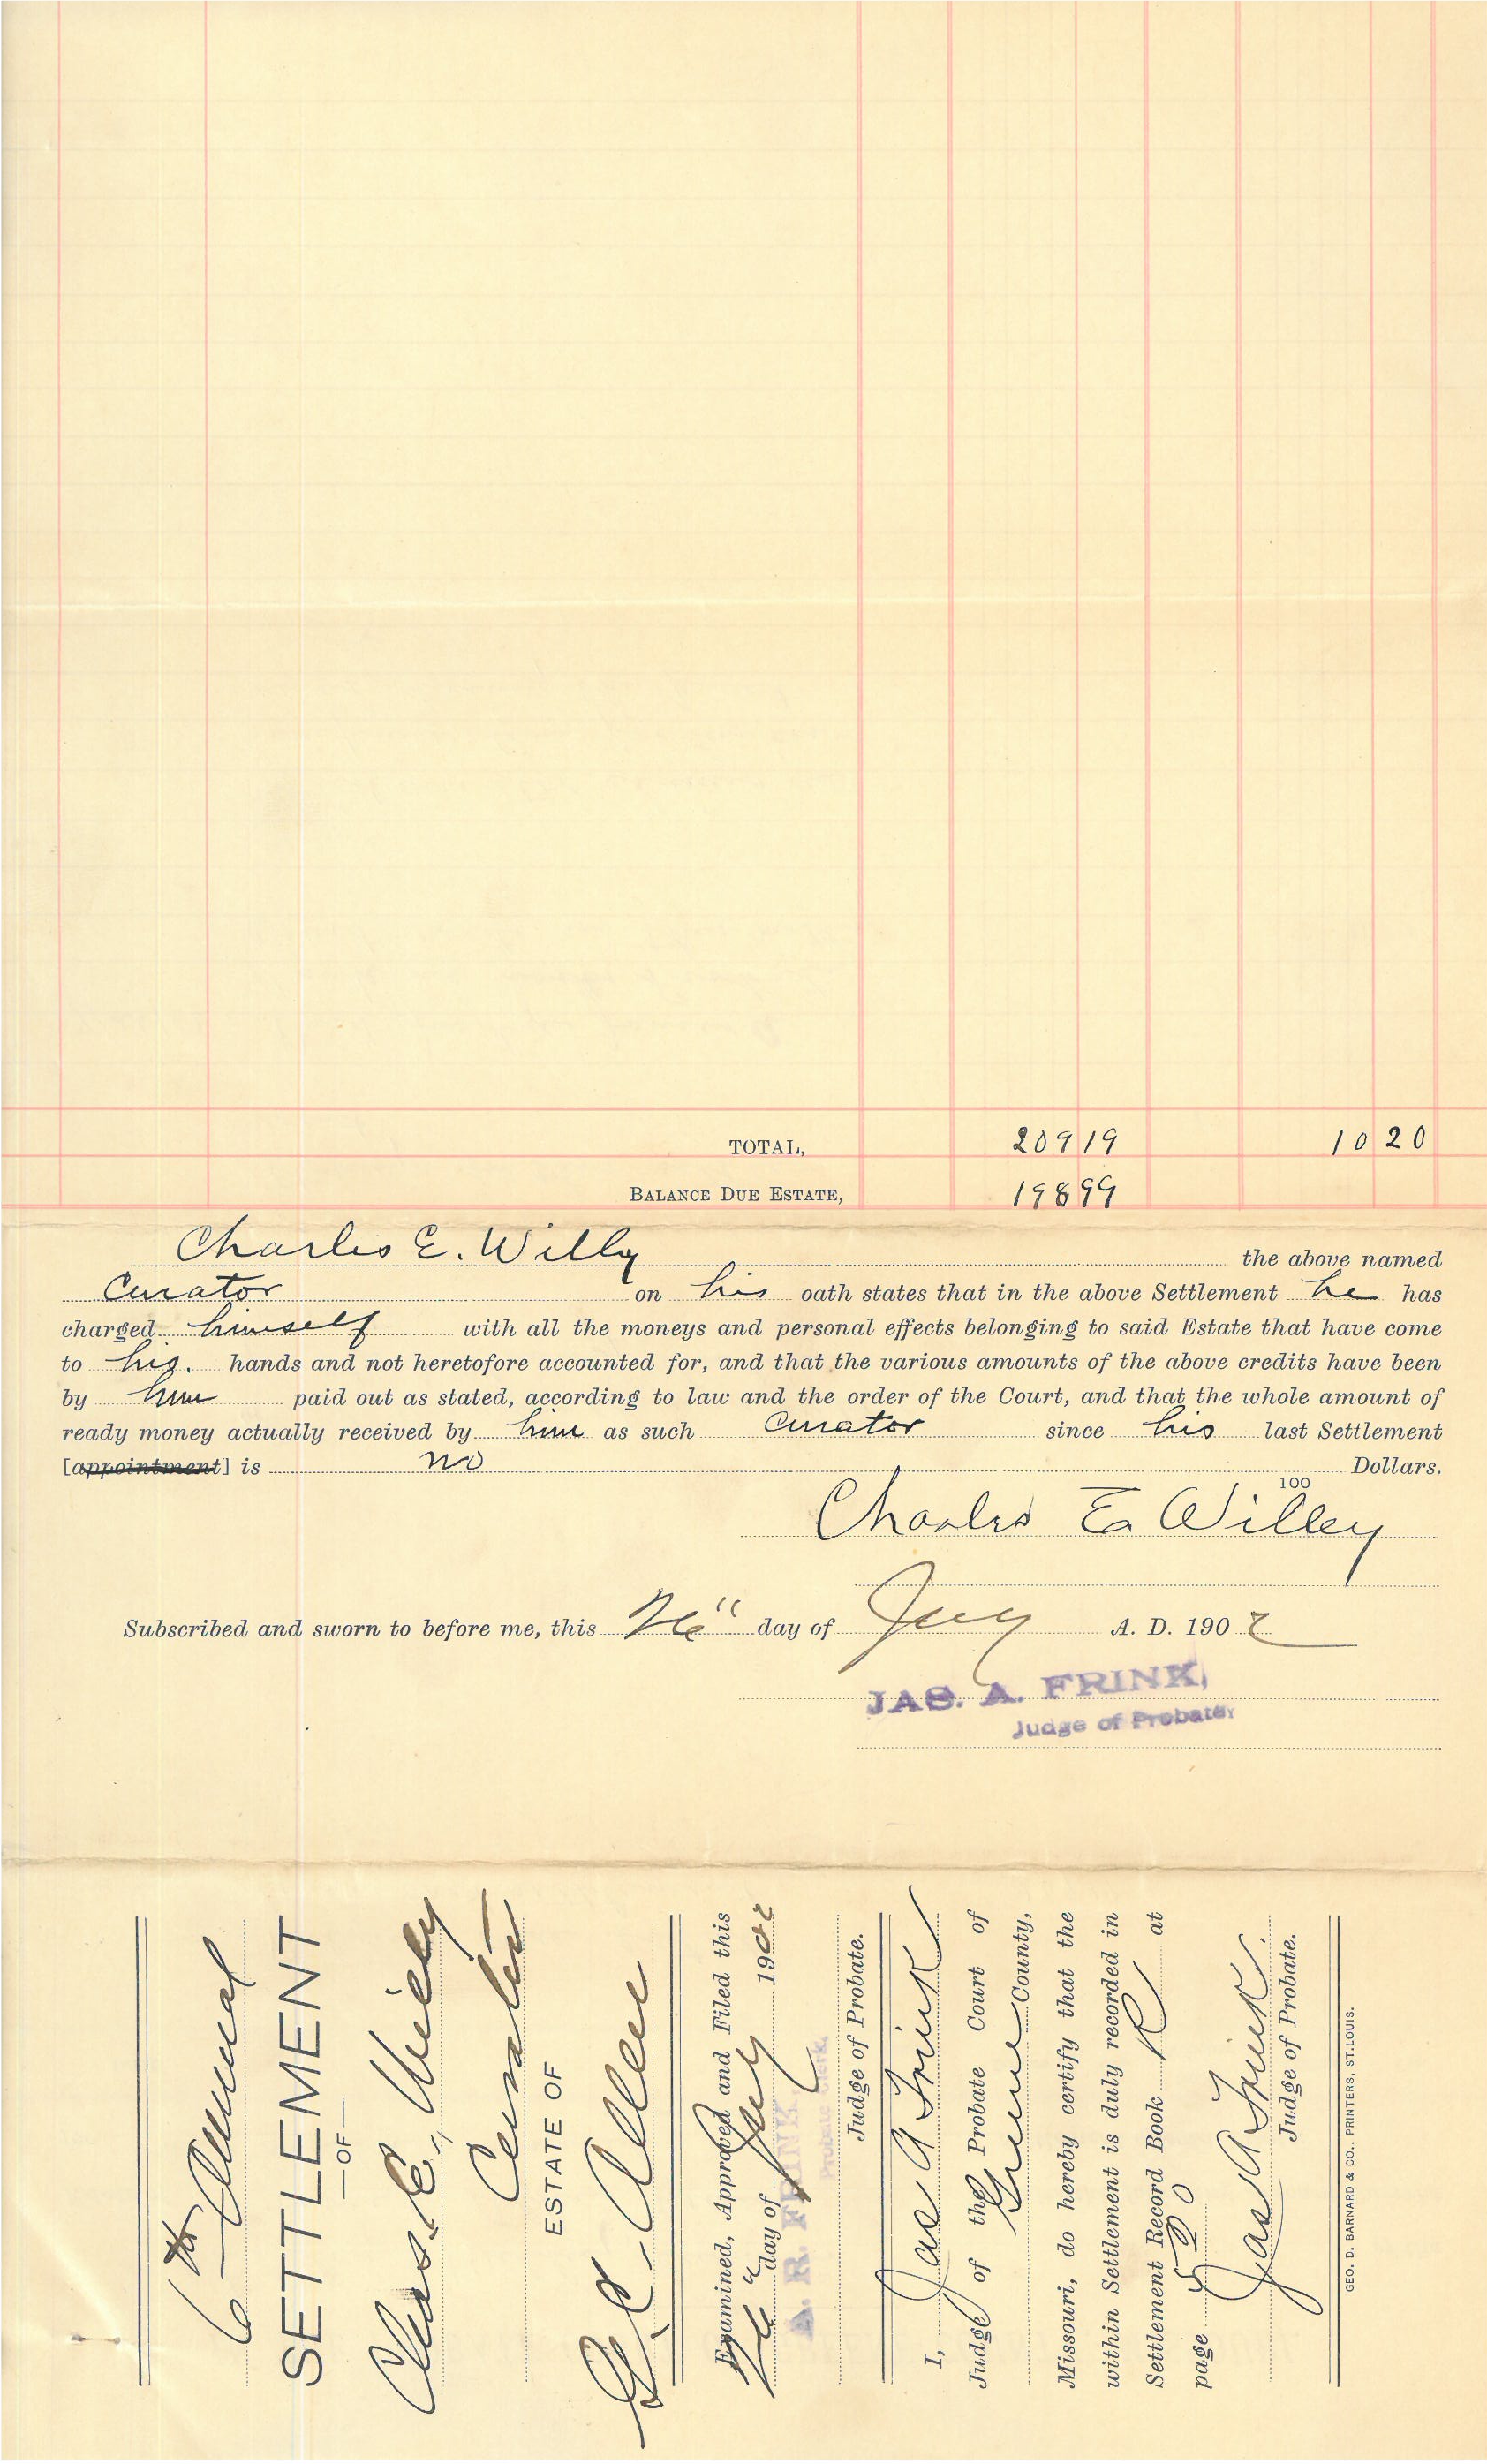 TOTAL, 209 19 10 20
BALANCE DUE ESTATE, 198 99
Charles E. Willy the above named
Curator on his oath states that in the above Settlement he has
charged himself with all the moneys and personal effects belonging to said Estate that have come
to his. hands and not heretofore accounted for, and that the various amounts of the above credits have been
by him paid out as stated, according to law and the order of the Court, and that the whole amount of
ready money actually received by him as such Curator since his last Settlement
[appointment] is no Dollars.
100
Charles E Willey
Subscribed and sworn to before me, this day of A. D. 1902
JAS. A. FRINK,
Judge of Probate
6th Annual
SETTLEMENT
—OF—
Chas. E. Willey
Curator
ESTATE OF
Allen
Examined, Approved and Filed this
day of 1902
A. R. FRINK
Probate Clerk.
Judge of Probate.
I, Jas A Frink
Judge of the Probate Court of
Greene County,
Missouri, do hereby certify that the
within Settlement is duly recorded in
Settlement Record Book R at
page 520
Jas A Frink.
Judge of Probate.
GEO. D. BARNARD & CO., PRINTERS, ST. LOUIS.